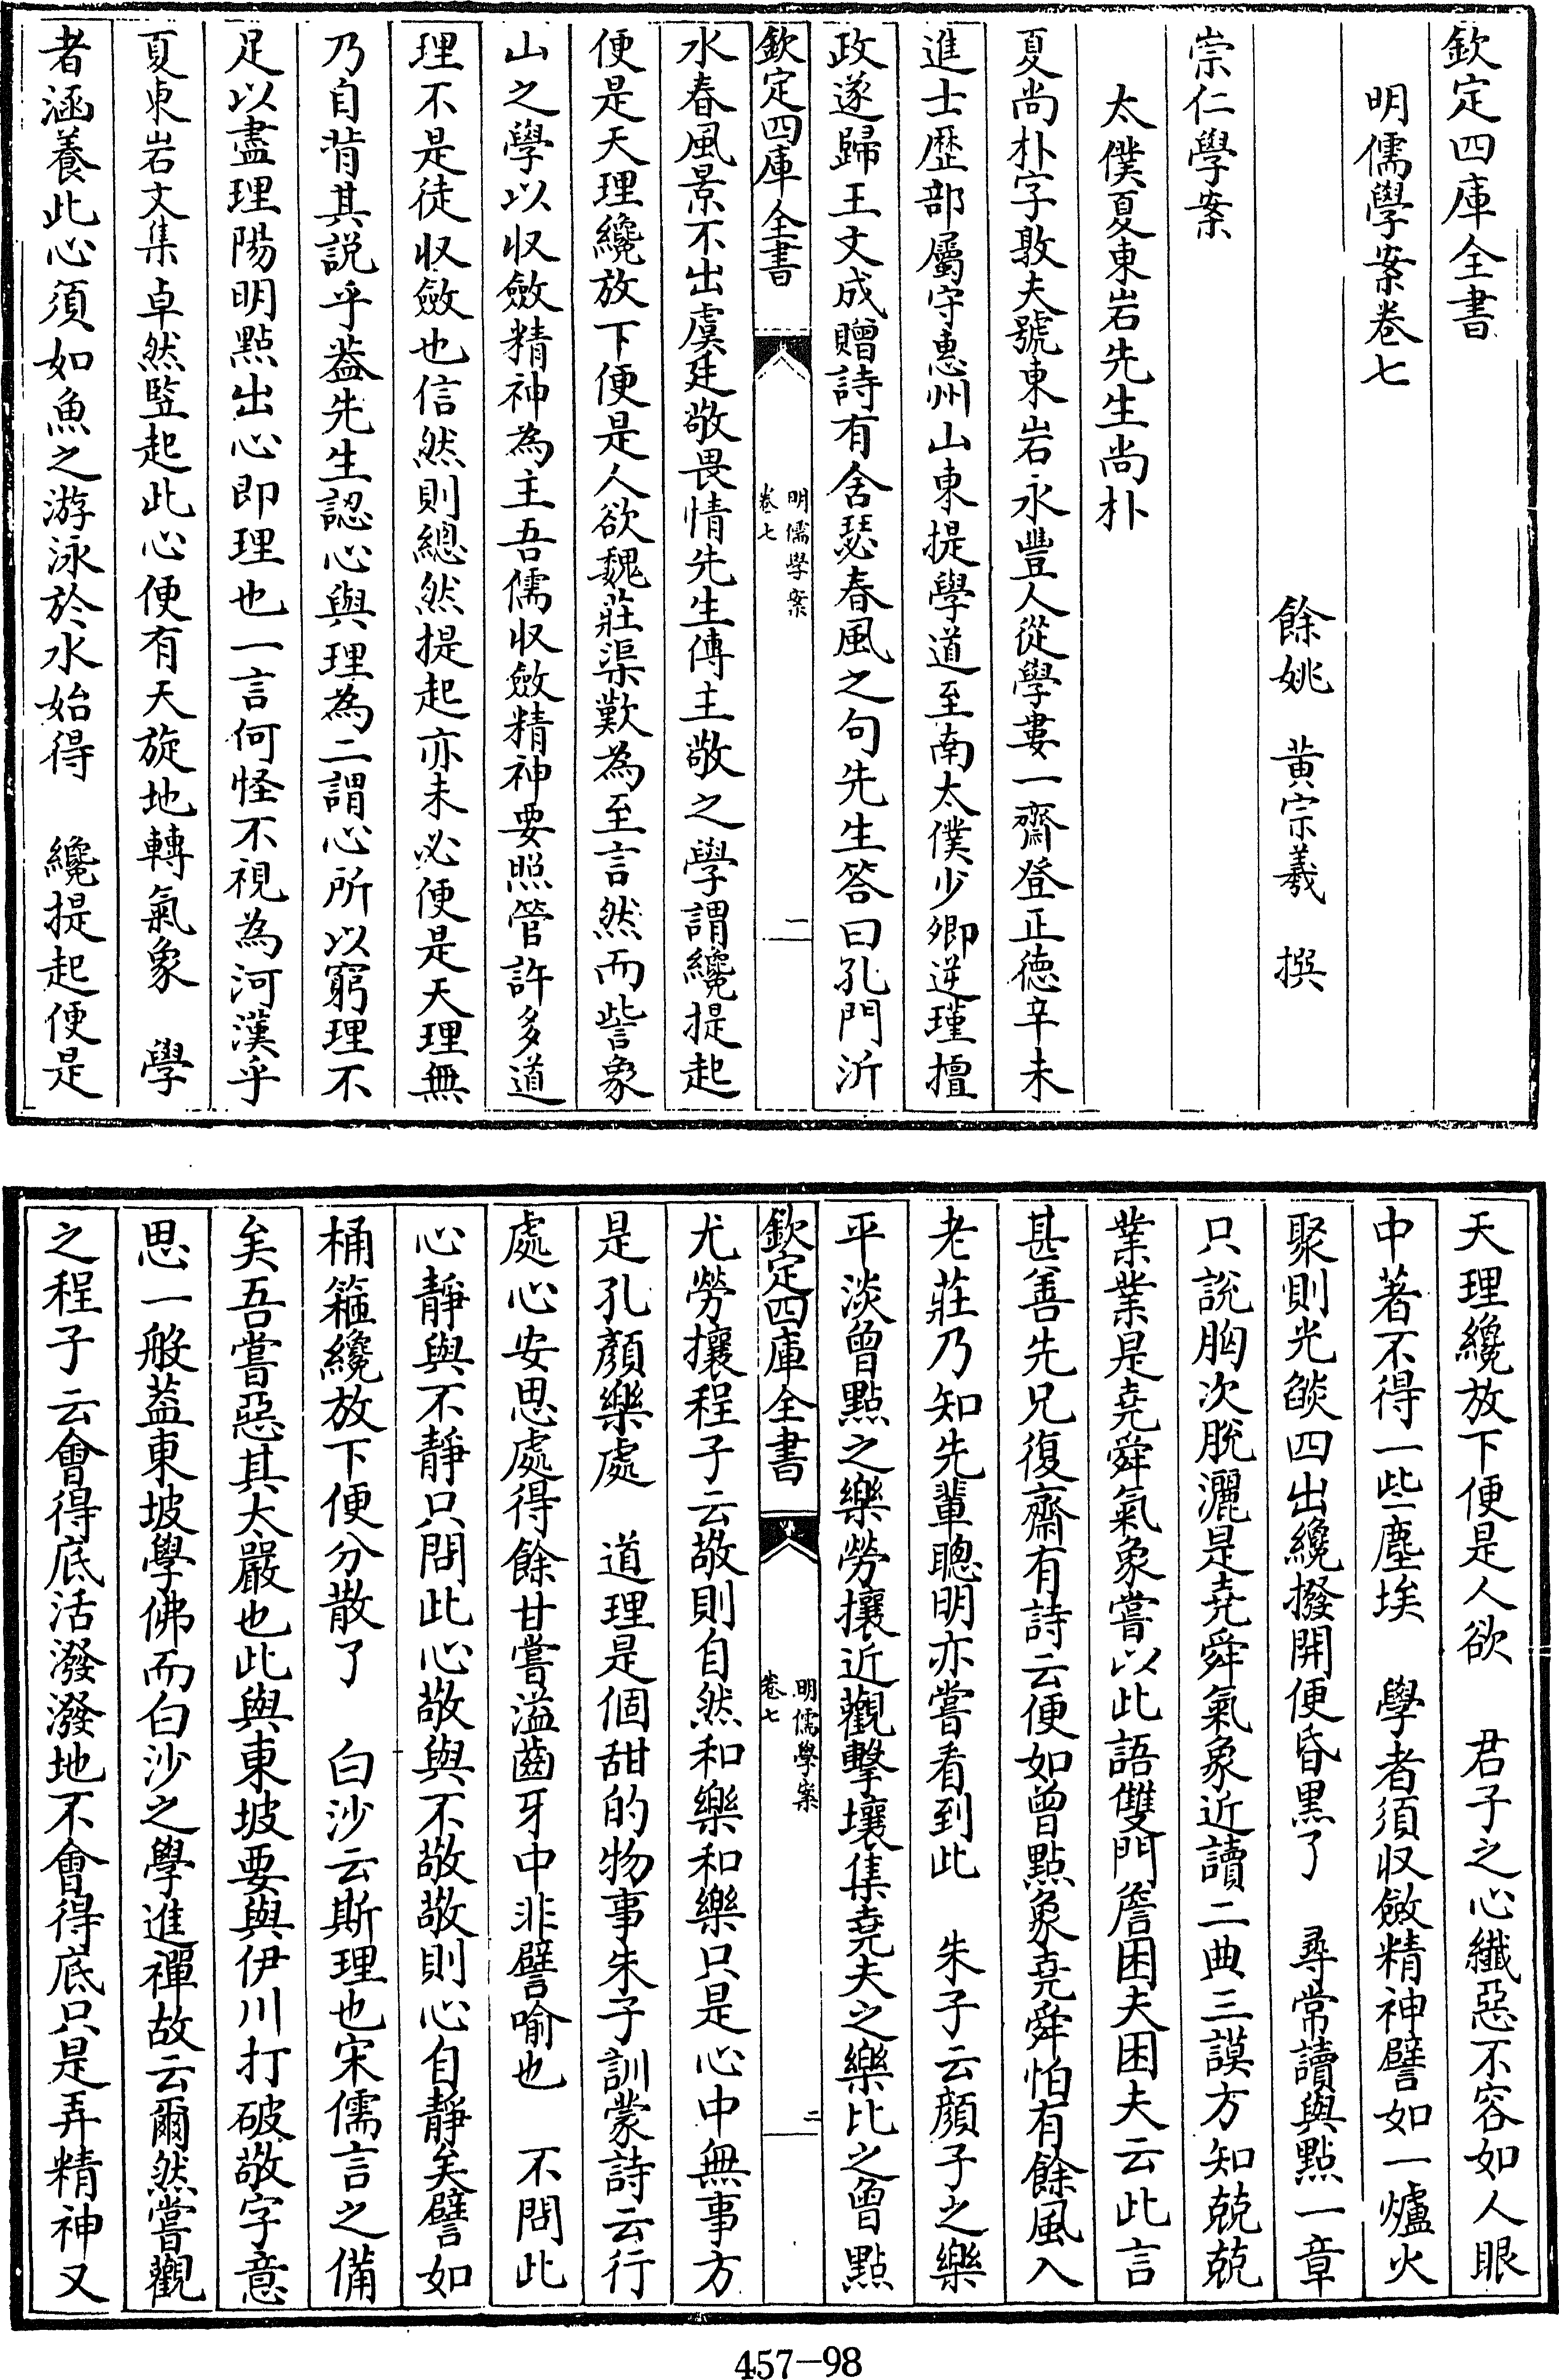 欽定四庫全書
明儒學案卷七
餘姚　黄宗羲　撰
崇仁學案
太僕夏東岩先生尚朴
夏尚朴字敦夫號東岩永豐人從學婁一齋登正徳辛未
進士歴部屬守惠州山東提學道至南太僕少卿逆瑾擅
政遂歸王文成贈詩有舍瑟春風之句先生答曰孔門沂
欽定四庫全書　明儒學案　卷七　一
水春風景不出虞廷敬畏情先生傳主敬之學謂纔提起
便是天理纔放下便是人欲魏莊渠歎為至言然而訾象
山之學以収斂精神為主吾儒収斂精神要照管許多道
理不是徒収斂也信然則總然提起亦未必便是天理無
乃自背其説乎葢先生認心與理為二謂心所以窮理不
足以盡理陽明點出心即理也一言何怪不視為河漢乎
夏東岩文集卓然竪起此心便有天旋地轉氣象　學
者涵養此心須如魚之游泳於水始得　纔提起便是
天理纔放下便是人欲　君子之心纎惡不容如人眼
中著不得一些塵埃　學者須収斂精神譬如一爐火
聚則光燄四出纔撥開便昏黒了　尋常讀與點一章
只説胸次脱灑是尭舜氣象近讀二典三謨方知兢兢
業業是尭舜氣象嘗以此語雙門詹困夫困夫云此言
甚善先兄復齋有詩云便如曾點象尭舜怕有餘風入
老莊乃知先輩聰明亦嘗看到此　朱子云顔子之樂
平淡曾點之樂勞攘近觀擊壤集尭夫之樂比之曾點
欽定四庫全書　明儒學案　卷七　二
尤勞攘程子云敬則自然和樂和樂只是心中無事方
是孔顔樂處　道理是個甜的物事朱子訓蒙詩云行
處心安思處得餘甘嘗溢齒牙中非譬喻也　不問此
心靜與不靜只問此心敬與不敬敬則心自靜矣譬如
桶箍纔放下便分散了　白沙云斯理也宋儒言之備
矣吾嘗惡其大嚴也此與東坡要與伊川打破敬字意
思一般葢東坡學佛而白沙之學進禪故云爾然嘗觀
之程子云會得底活潑潑地不會得底只是弄精神又
457-98